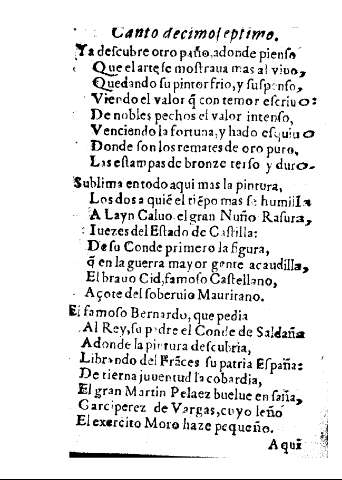 Canto decimoseptimo.
Ya descubre otro paño, adonde pienso
Que el arte se mostraua mas al viuo,
Quedando su pintor frio, y suspenso,
Viendo el valor q̃ con temor escriuo:
De nobles pechos el valor intenso,
Venciendo la fortuna, y hado esquiuo
Donde son los remates de oro puro,
Las estampas de bronze terso y duro.
Sublima en todo aqui mas la pintura,
Los dos a quiẽ el tiẽpo mas se humilla
A Layn Caluo, el gran Nuño Rasura,
Iuezes del Estado de Castilla:
De su Conde primero la figura,
q̃ en la guerra mayor gente acaudilla,
El brauo Cid, famoso Castellano,
Açote del soberuio Mauritano.
El famoso Bernardo, que pedia
Al Rey, su padre el Conde de Saldaña
Adonde la pintura descubria,
Librando del Frãces su patria España:
De tierna juuentud la cobardia,
El gran Martin Pelaez buelue en saña,
Garciperez de Vargas, cuyo leño
El exercito Moro haze pequeño.
Aqui